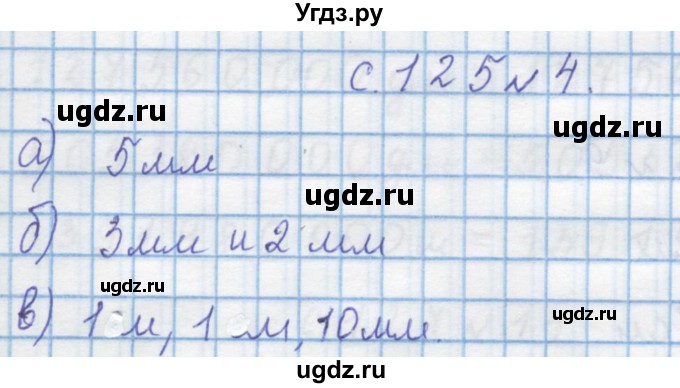 Угдз.ру
с. 125 № 4.
ugdz.ru
ugdz.ru
а) 5 мм
ugdz.ru
б) 3 мм и 2 мм
ugdz.ru
ugdz.ru
в) 1 м, 1 м, 10 мм.
ugdz.ru